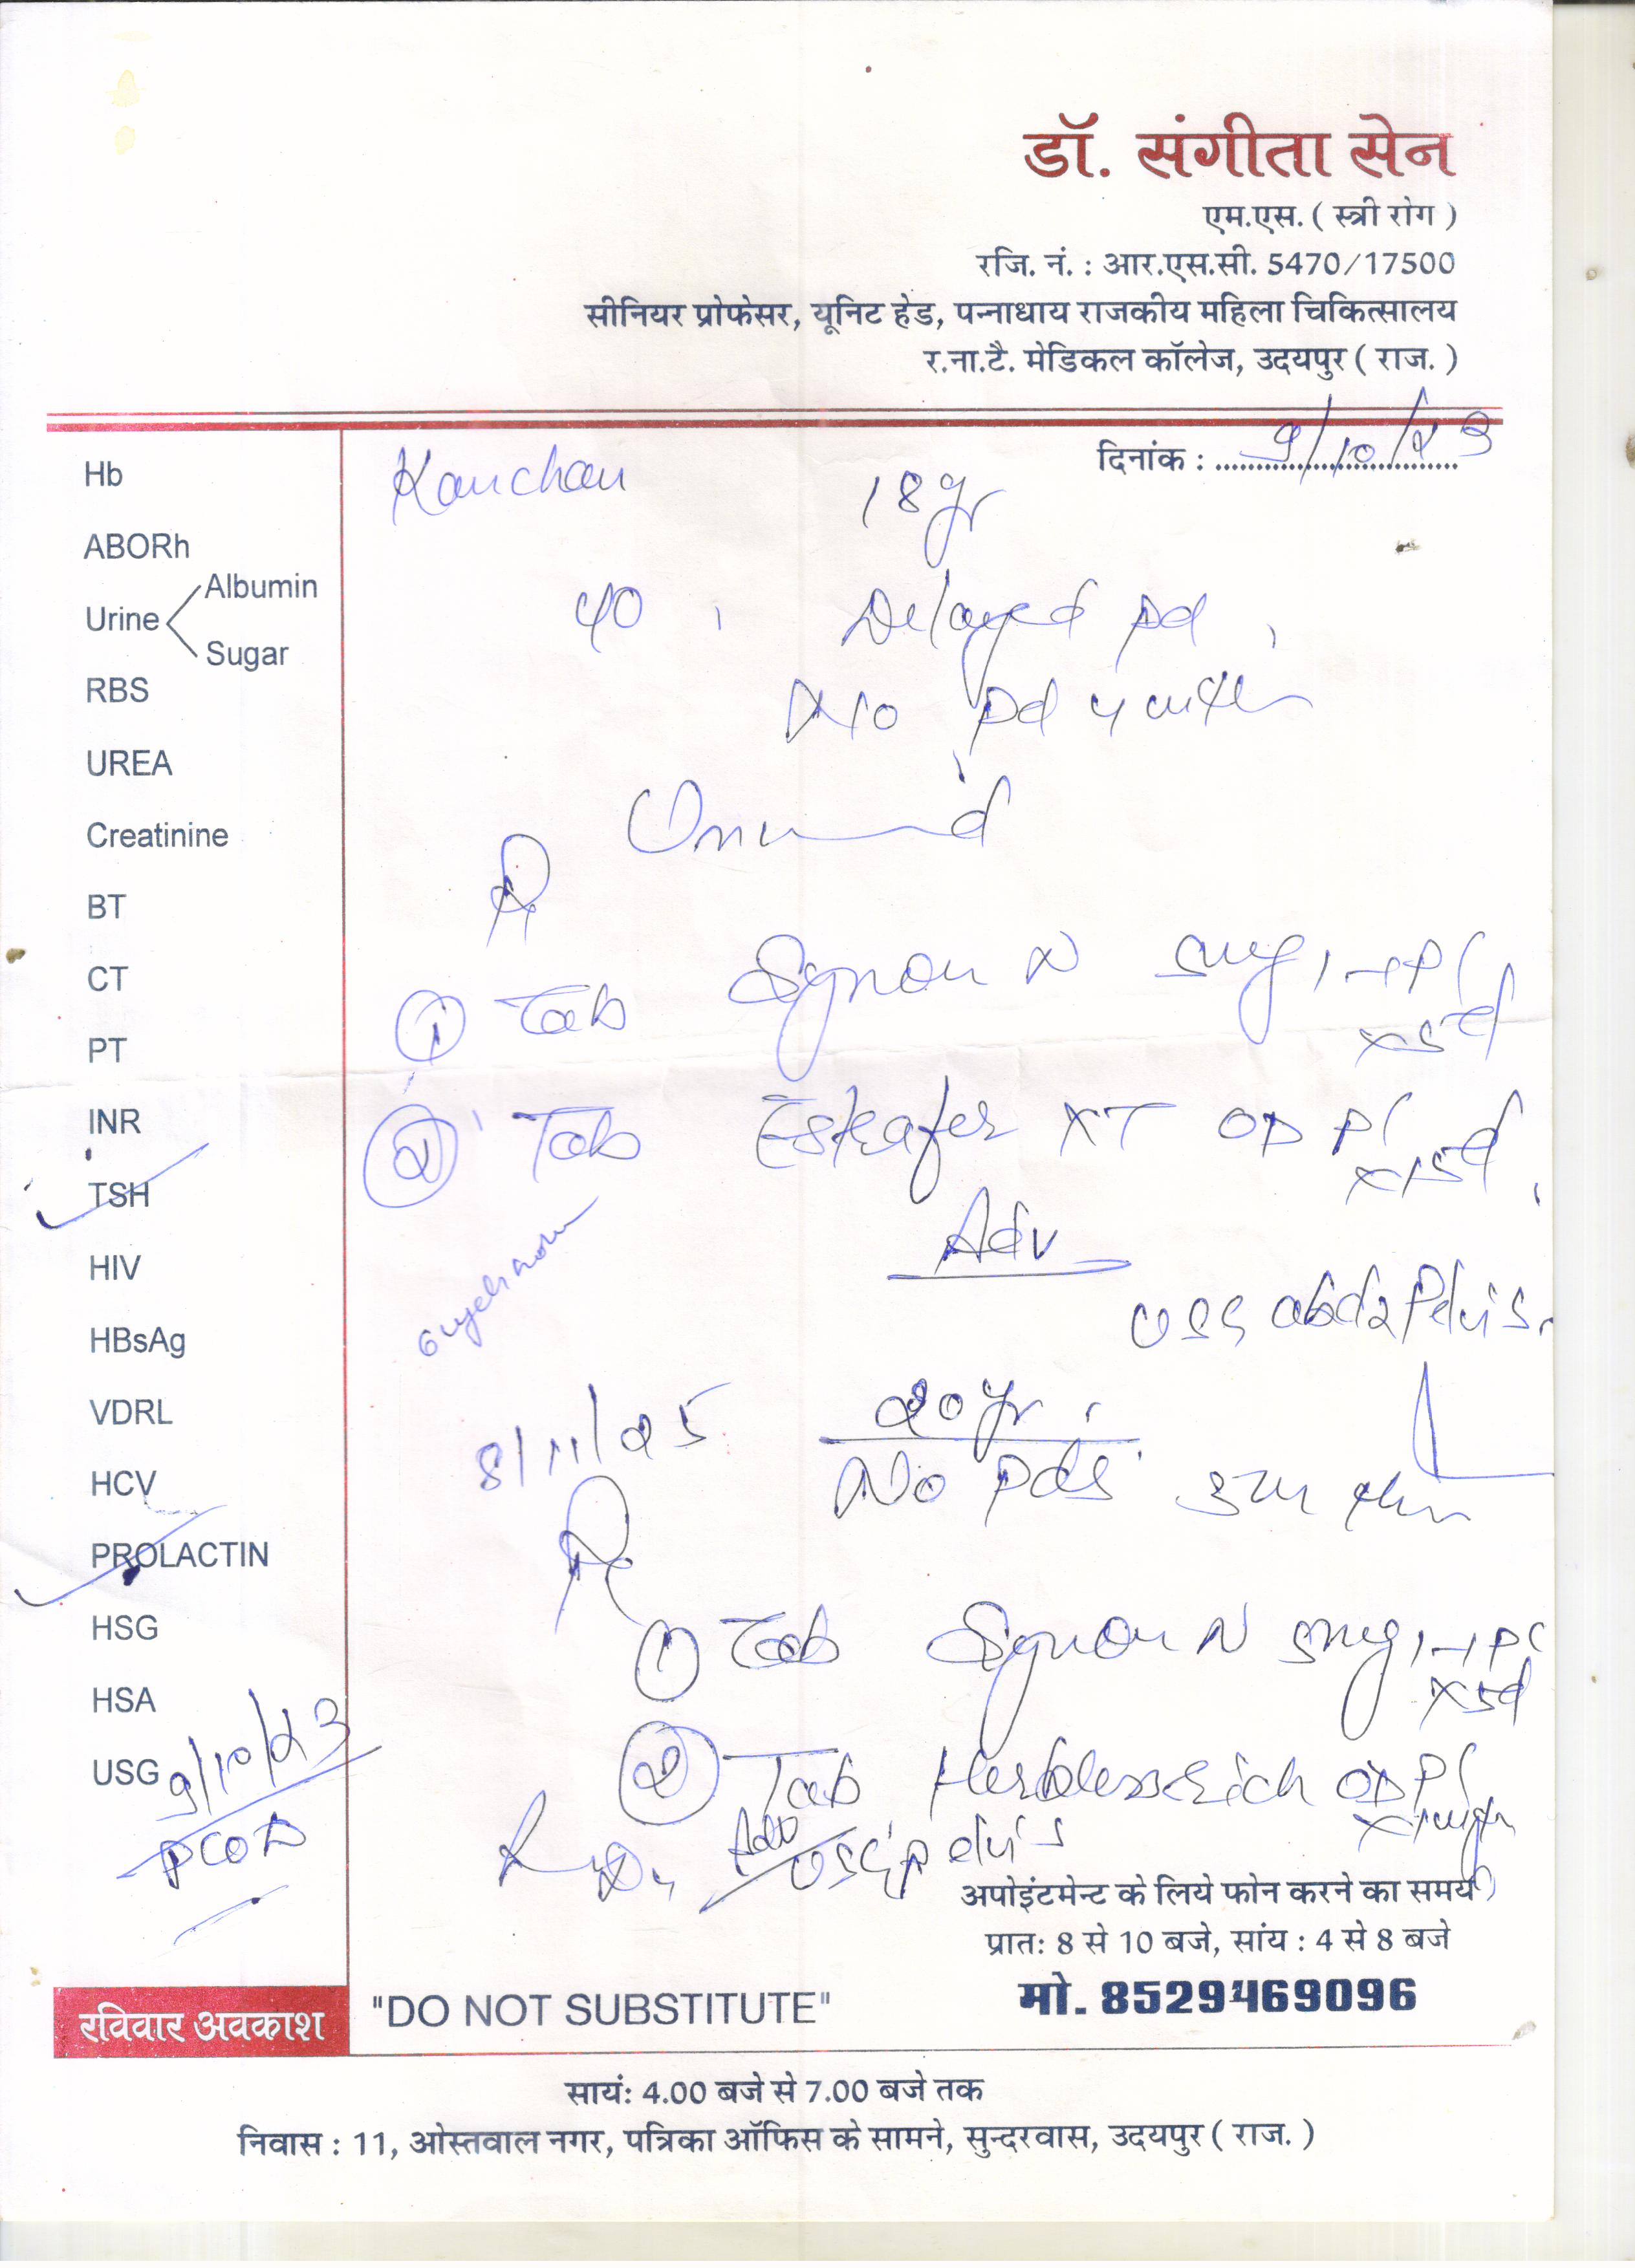 डॉ. संगीता सेन
एम.एस. ( स्त्री रोग )
रजि. नं. : आर.एस.सी. 5470/17500
सीनियर प्रोफेसर, यूनिट हेड, पन्नाधाय राजकीय महिला चिकित्सालय
र.ना.टै. मेडिकल कॉलेज, उदयपुर ( राज. )
दिनांक : 9/10/23
Kanchan 18 yr
Delayed pd
No pd
Tab N 5mg 1-1 Pc x 5d
Tab XT OD Pc x 15d
Adv
USG abd & Pelvis
8/11/25 20 yr
No pds
Tab N 5mg 1-1 Pc x 5d
Tab OD Pc
Adv
USG pelvis
Hb
ABORh
Urine Albumin
Sugar
RBS
UREA
Creatinine
BT
CT
PT
INR
TSH
HIV
HBsAg
VDRL
HCV
PROLACTIN
HSG
HSA
USG 9/10/23
PCOD
अपोइंटमेन्ट के लिये फोन करने का समय
प्रातः 8 से 10 बजे, सांय : 4 से 8 बजे
मो. 8529469096
रविवार अवकाश
"DO NOT SUBSTITUTE"
सायं: 4.00 बजे से 7.00 बजे तक
निवास : 11, ओस्तवाल नगर, पत्रिका ऑफिस के सामने, सुन्दरवास, उदयपुर ( राज. )